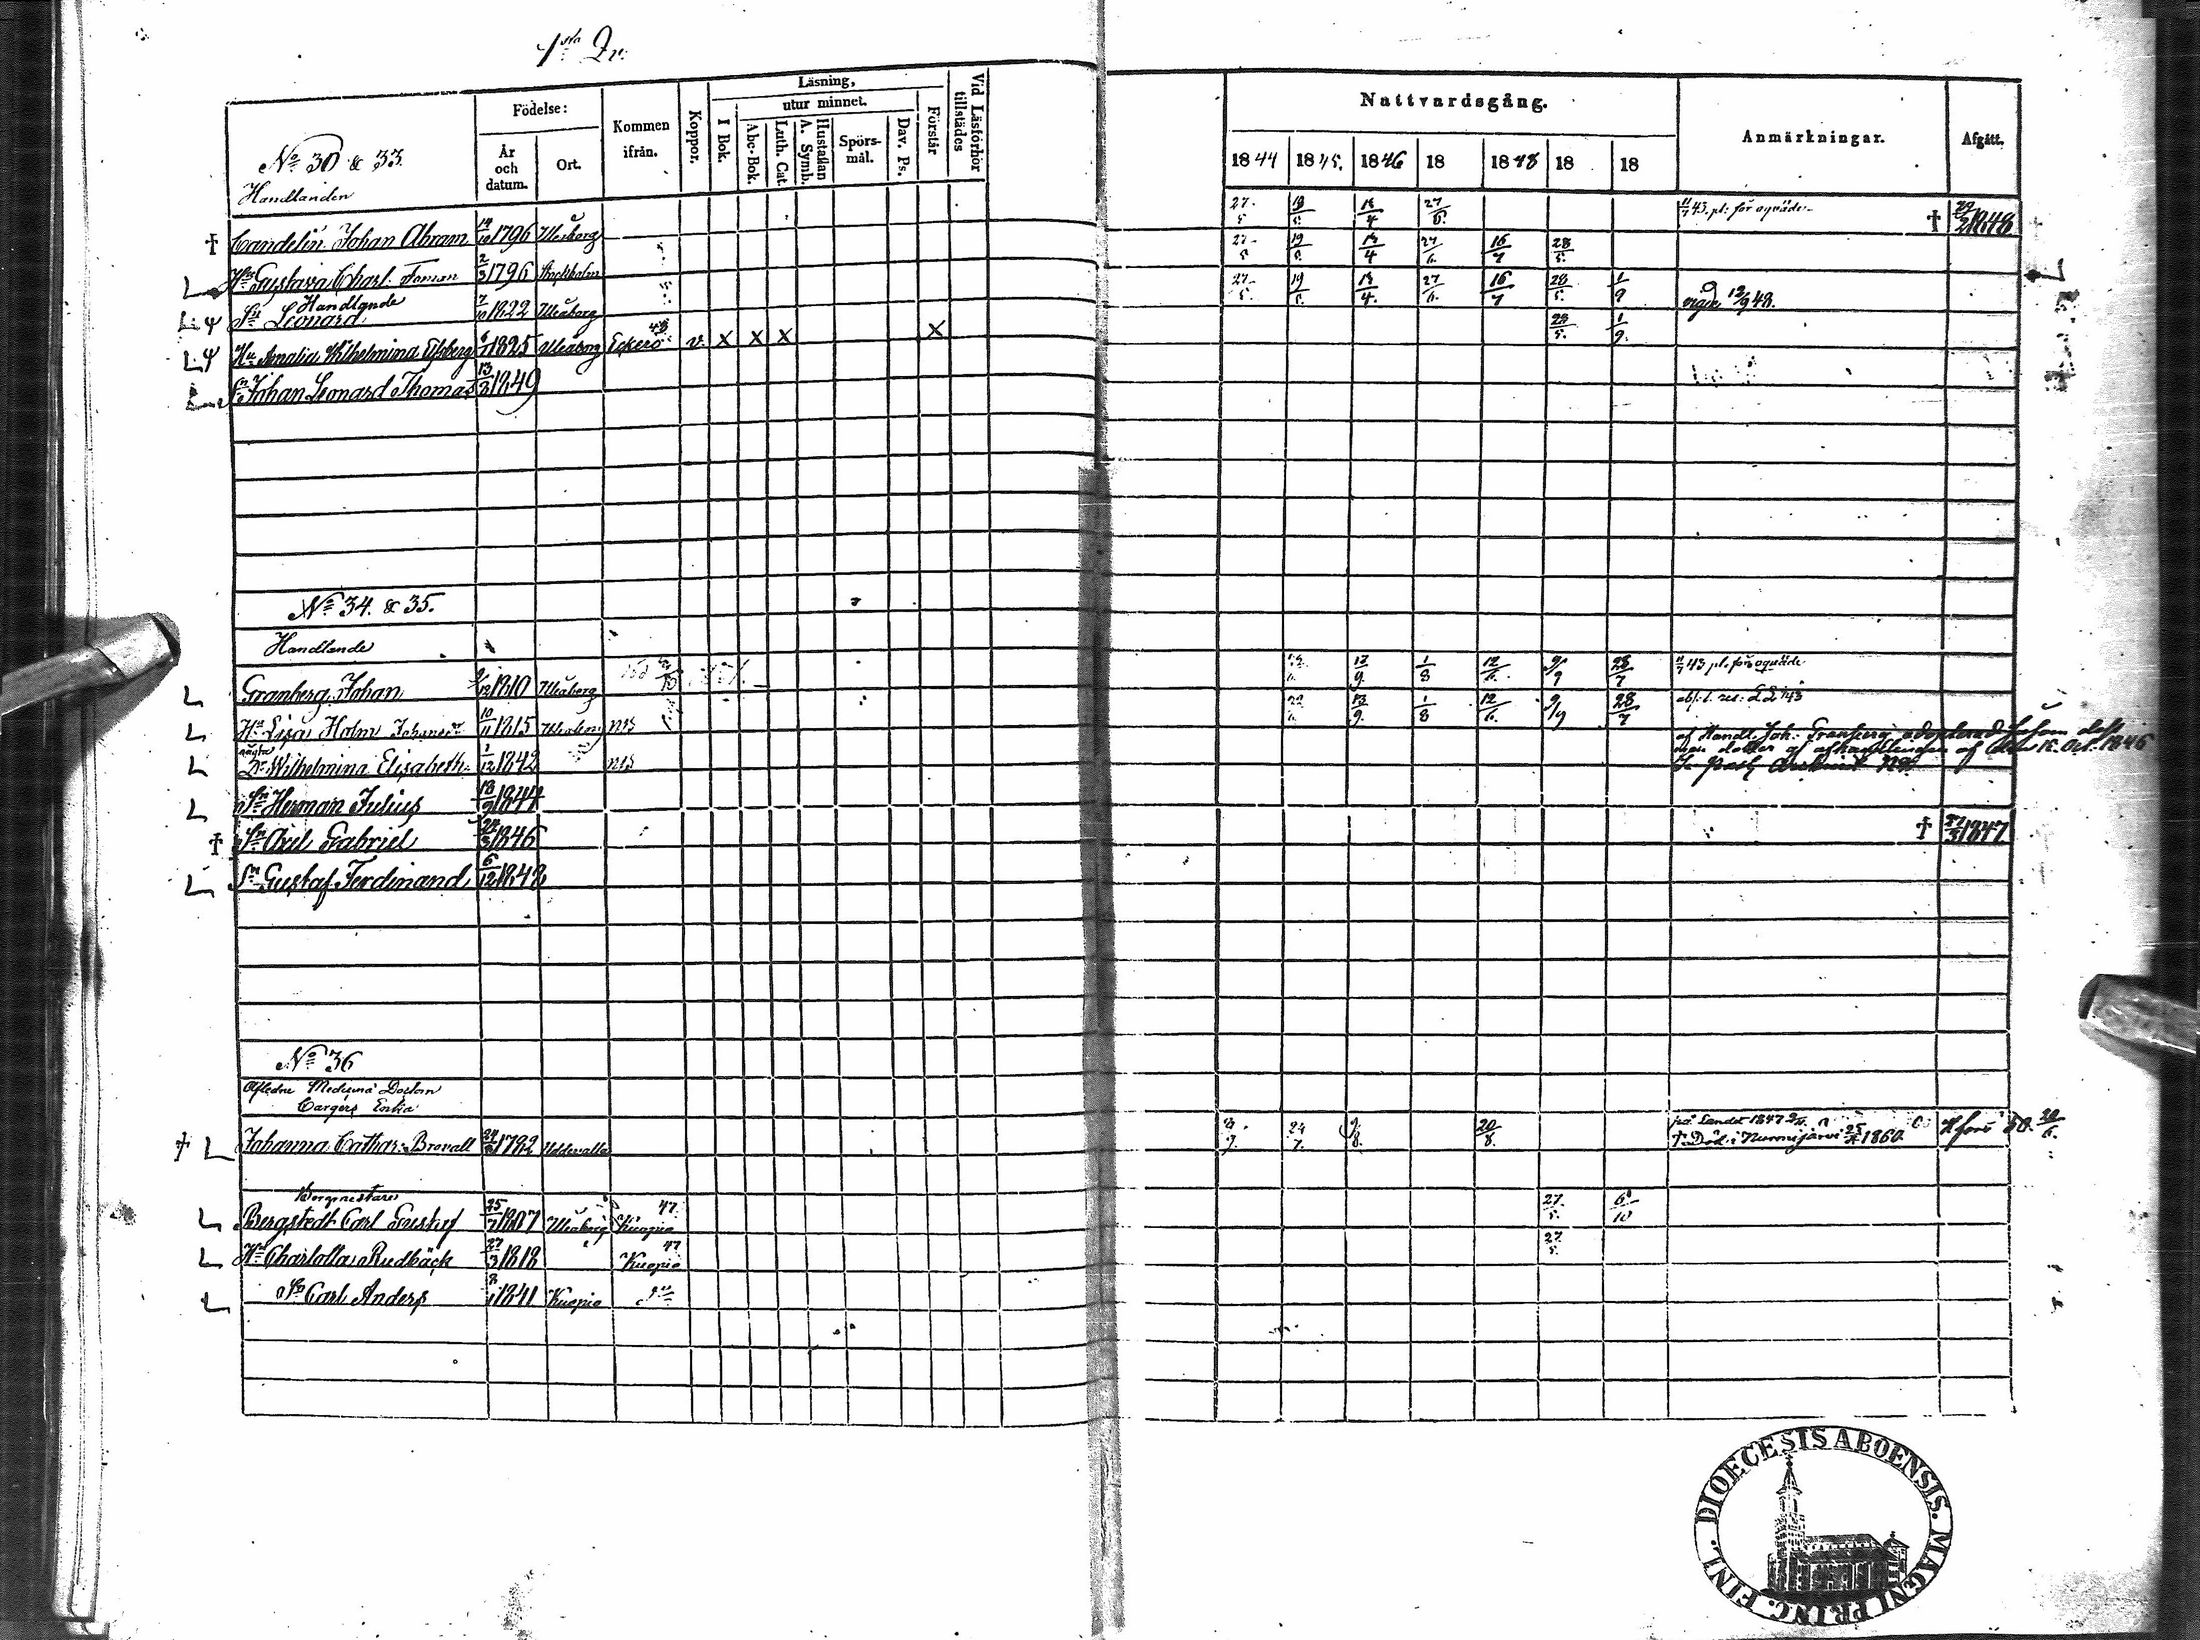 1sta Qv.
Födelse:
Kommen ifrån.
Koppor.
Läsning,
utur minnet.
I Bok.
Abc-Bok.
Luth. Cat.
Hustaflan A. Symb.
Spörs-mål.
Dav. Ps.
Förstår
Vid Läsförhör tillstädes
År och datum.
Ort.
Nattvardsgång.
1844 1845. 1846 18 1848 18 18
Anmärkningar.
Afgått.
No 30 & 33.
Handlanden
† Candelin Johan Abram 14/10 1796 Uleåborg 27/5 19/5 14/4 27/6. 11/7 43. pl: för oqväde † 29/2 1848
L Hu Gustava Charl. Toman 2/3 1796 Stockholm 27/5 19/5 14/4 27/6 16/7 28/5.
Handlande
L Sn Leonard 7/10 1822 Uleåborg 27/5. 19/5 14/4. 27/6. 16/7 28/5. 1/9 12/9 48.
L Hu Amalia Wilhelmina Elfsberg 1825 Uleåborg Eckerö 48 v. X X X X 28/5. 1/9.
L Sn Johan Leonard Thomas 13/3 1849
No 34. & 35.
Handlande
L Granberg Johan 1810 Uleåborg 12/9. 1/8 12/6. 9/9 28/7 11/7 43 pl. för oqväde
L Hu Lisa Holm 10/11 1815 Uleåborg 13/9. 1/8 12/6. 9/9 28/7
af Handl. Joh. Granberg adopterad såsom dess
L Dr Wilhelmina Elisabeth 1/12 1842
L Sn Herman Julius 18/9 1844
† Sn Axel Gabriel 24/3 1846 † 1847
L Sn Gustaf Ferdinand 6/12 1848
No 36
Afledne Medicinæ Doctorn
Cargers Enka
† L Johanna Cathar: Brovall 1792 Uddevalla 24/7. 9/8. 20/8. på Landet 1847
† Död i Nurmijärvi 1860. Hfors 50. 20/6.
Bergmestare
L Bergstedt Carl Gustaf 25/7 1807 Uleåborg Kuopio 47 27/5. 6/10
L Hu Charlotta Rudbäck 27/3 1818 Kuopio 47 27/5.
L Sn Carl Anders 1841 Kuopio
DIOECESIS ABOENSIS. MAGNI PRINC. FINL.